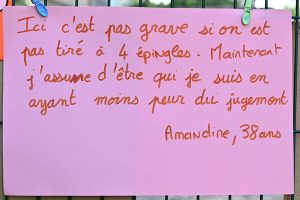 Ici c'est pas grave si on est
pas tiré à 4 épingles. Maintenant
j'assume d'être qui je suis en
ayant moins peur du jugement.
Amandine, 38ans